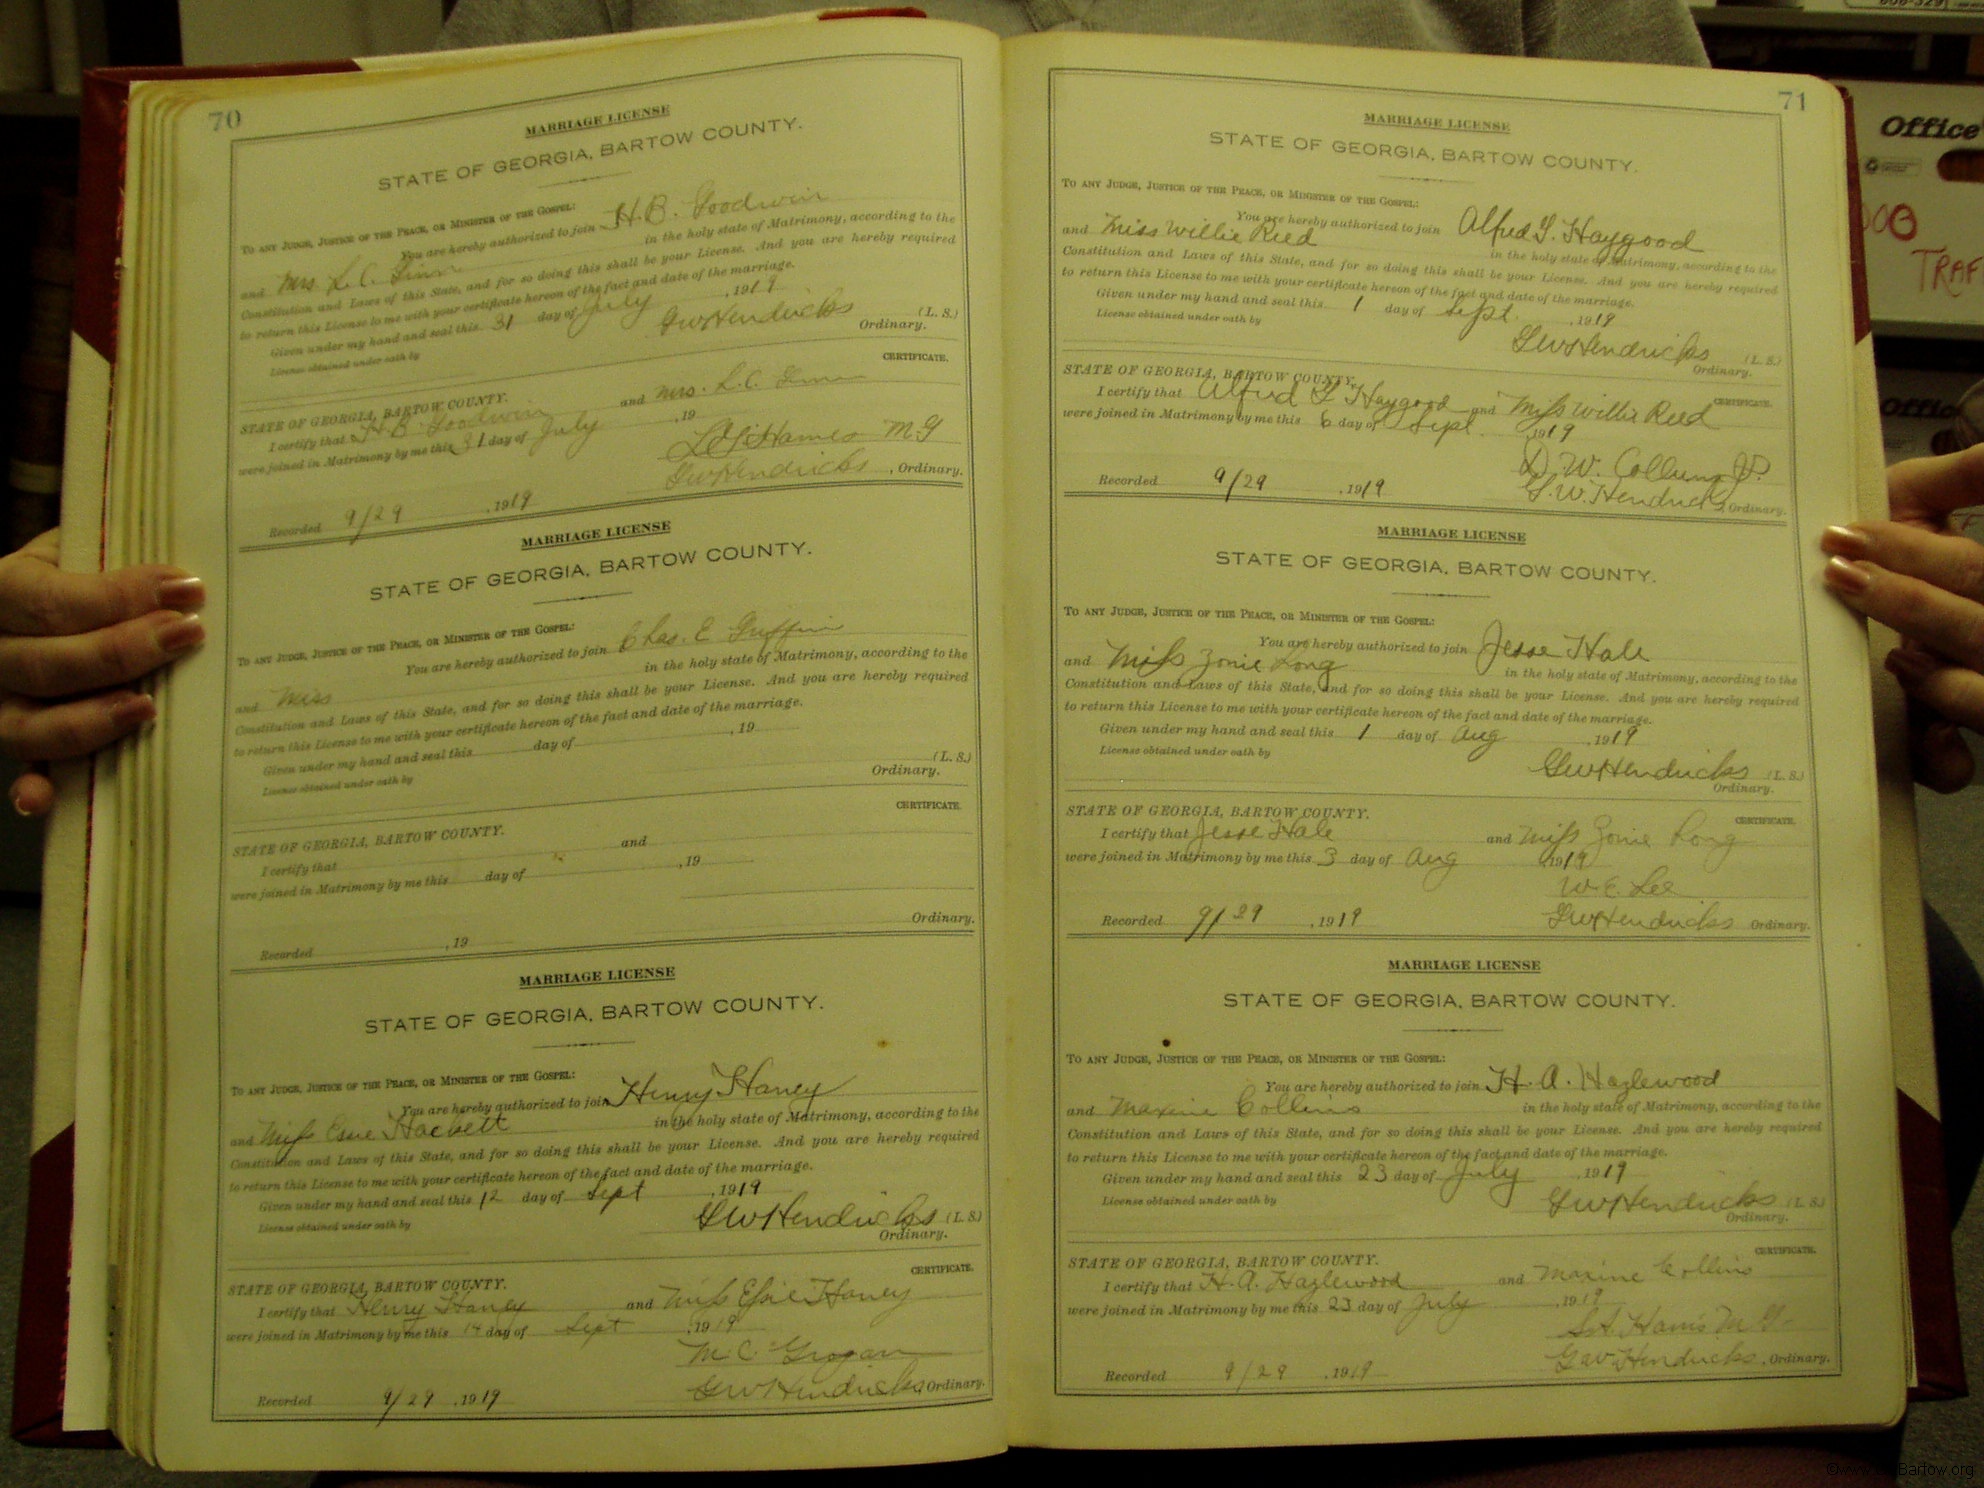 70
MARRIAGE LICENSE
STATE OF GEORGIA, BARTOW COUNTY.
TO ANY JUDGE, JUSTICE OF THE PEACE, OR MINISTER OF THE GOSPEL:
You are hereby authorized to join H. B. Goodwin
and Mrs. L. C. in the holy state of Matrimony, according to the
Constitution and Laws of this State, and for so doing this shall be your License. And you are hereby required
to return this License to me with your certificate hereon of the fact and date of the marriage.
Given under my hand and seal this 31 day of July, 1919
License obtained under oath by
GW Hendricks (L. S.)
Ordinary.
CERTIFICATE.
STATE OF GEORGIA, BARTOW COUNTY.
I certify that H. B. Goodwin and Mrs. L. C.
were joined in Matrimony by me this 31 day of July, 19
M. G.
GW Hendricks, Ordinary.
Recorded 9/29, 1919
MARRIAGE LICENSE
STATE OF GEORGIA, BARTOW COUNTY.
TO ANY JUDGE, JUSTICE OF THE PEACE, OR MINISTER OF THE GOSPEL:
You are hereby authorized to join Chas. E Griffin
and Miss in the holy state of Matrimony, according to the
Constitution and Laws of this State, and for so doing this shall be your License. And you are hereby required
to return this License to me with your certificate hereon of the fact and date of the marriage.
Given under my hand and seal this day of , 19
License obtained under oath by
(L. S.)
Ordinary.
CERTIFICATE.
STATE OF GEORGIA, BARTOW COUNTY.
I certify that and
were joined in Matrimony by me this day of , 19
Ordinary.
Recorded , 19
MARRIAGE LICENSE
STATE OF GEORGIA, BARTOW COUNTY.
TO ANY JUDGE, JUSTICE OF THE PEACE, OR MINISTER OF THE GOSPEL:
You are hereby authorized to join Henry Haney
and Miss Essie Hackett in the holy state of Matrimony, according to the
Constitution and Laws of this State, and for so doing this shall be your License. And you are hereby required
to return this License to me with your certificate hereon of the fact and date of the marriage.
Given under my hand and seal this 12 day of Sept, 1919
License obtained under oath by
GW Hendricks (L. S.)
Ordinary.
CERTIFICATE.
STATE OF GEORGIA, BARTOW COUNTY.
I certify that Henry Haney and Miss Essie Haney
were joined in Matrimony by me this 14 day of Sept, 1919
M. C. Grogan
GW Hendricks, Ordinary.
Recorded 9/29, 1919
71
MARRIAGE LICENSE
STATE OF GEORGIA, BARTOW COUNTY.
TO ANY JUDGE, JUSTICE OF THE PEACE, OR MINISTER OF THE GOSPEL:
You are hereby authorized to join Alfred G. Haygood
and Miss Willie Reed in the holy state of Matrimony, according to the
Constitution and Laws of this State, and for so doing this shall be your License. And you are hereby required
to return this License to me with your certificate hereon of the fact and date of the marriage.
Given under my hand and seal this 1 day of Sept., 1919
License obtained under oath by
GW Hendricks (L. S.)
Ordinary.
CERTIFICATE.
STATE OF GEORGIA, BARTOW COUNTY.
I certify that Alfred G Haygood and Miss Willie Reed
were joined in Matrimony by me this 6 day of Sept. 1919
D. W. Collum J.P.
G. W. Hendricks, Ordinary.
Recorded 9/29, 1919
MARRIAGE LICENSE
STATE OF GEORGIA, BARTOW COUNTY.
TO ANY JUDGE, JUSTICE OF THE PEACE, OR MINISTER OF THE GOSPEL:
You are hereby authorized to join Jesse Hale
and Miss Zonie Long in the holy state of Matrimony, according to the
Constitution and Laws of this State, and for so doing this shall be your License. And you are hereby required
to return this License to me with your certificate hereon of the fact and date of the marriage.
Given under my hand and seal this 1 day of Aug, 1919
License obtained under oath by
GW Hendricks (L. S.)
Ordinary.
CERTIFICATE.
STATE OF GEORGIA, BARTOW COUNTY.
I certify that Jesse Hale and Miss Zonie Long
were joined in Matrimony by me this 3 day of Aug 1919
W. E. Lee
GW Hendricks Ordinary.
Recorded 9/29, 1919
MARRIAGE LICENSE
STATE OF GEORGIA, BARTOW COUNTY.
TO ANY JUDGE, JUSTICE OF THE PEACE, OR MINISTER OF THE GOSPEL:
You are hereby authorized to join H. A. Hazlewood
and Maxine Collins in the holy state of Matrimony, according to the
Constitution and Laws of this State, and for so doing this shall be your License. And you are hereby required
to return this License to me with your certificate hereon of the fact and date of the marriage.
Given under my hand and seal this 23 day of July, 1919
License obtained under oath by
GW Hendricks (L. S.)
Ordinary.
CERTIFICATE.
STATE OF GEORGIA, BARTOW COUNTY.
I certify that H. A. Hazlewood and Maxine Collins
were joined in Matrimony by me this 23 day of July, 1919
Harris M G
GW Hendricks, Ordinary.
Recorded 9/29, 1919
Office
TRAF
Bartow.org